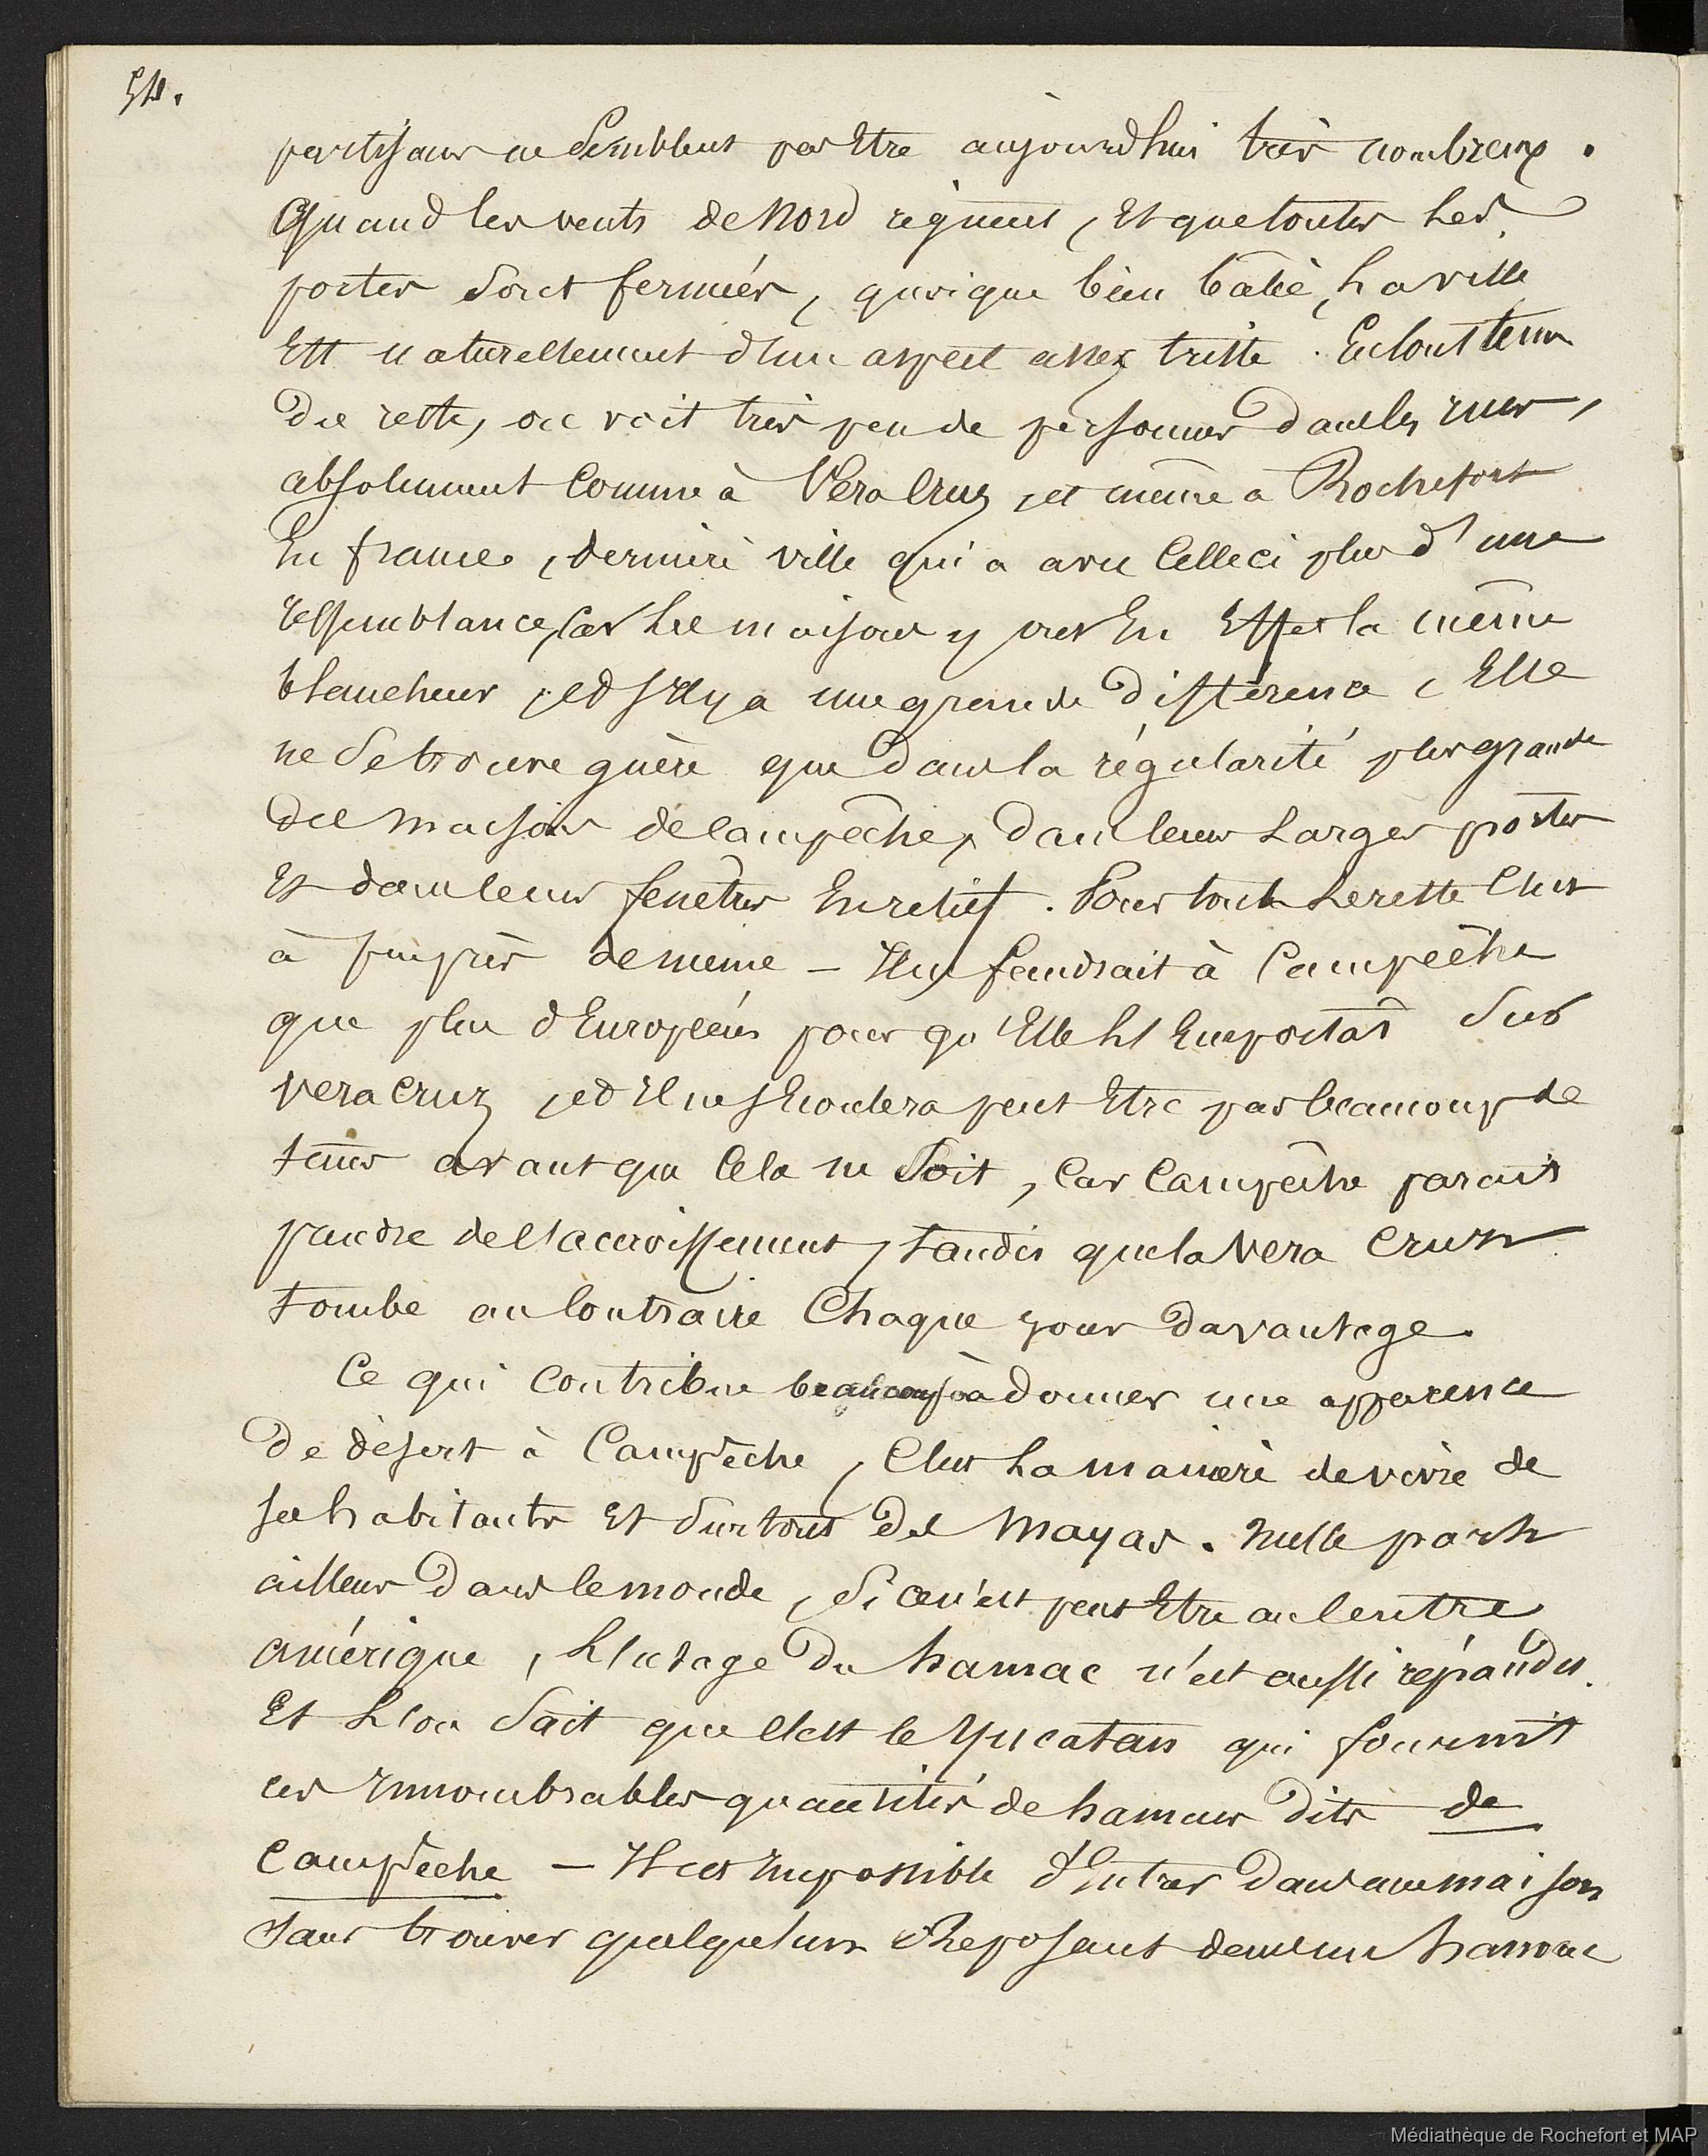 54.
partisans ne semblent pas Etre aujourdhui très nombreux.
Quand les vents de Nord règnent, Et que toutes les
portes sont fermées, quoique bien batie, la ville
Est naturellement d'un aspect assez triste. En tout tems
du reste, on voit très peu de personnes dans les rues,
absolument comme à Vera Cruz, et même à Rochefort
En france, dernière ville qui a avec Celle ci plus d'une
ressemblance, Car les maisons y ont En Effet la même
blancheur, et s'Il y a une grande différence, Elle
ne se trouve guère que dans la régularité plus grande
des maisons de Campêche, dans leurs larges portes
Et dans leurs fenêtres En relief. Pour tout le reste C'est
à peu près de meme — Il ne faudrait à Campêche
que plus d'Européens pour qu'Elle l'Emportât sur
Vera Cruz, et Il ne s'Ecoulera peut Etre pas beaucoup de
tems avant que Cela ne soit, Car Campêche parait
prendre de l'accroissement, tandis que la Vera Cruz
tombe au Contraire Chaque jour davantage.
Ce qui Contribue beaucoup à donner une apparence
de désert à Campêche, C'est la manière de vivre de
ses habitants Et surtout des Mayas. Nulle part
ailleurs dans le monde, si ce n'est peut Etre au Centre
amérique, l'usage du hamac n'est aussi répandu.
Et l'on sait que c'est le Yucatan qui fournit
ces Innombrables quantités de hamacs dits de
Campêche — Il est Impossible d'Entrer dans une maison
sans trouver quelqu'un Reposant dans un hamac
Médiathèque de Rochefort et MAP